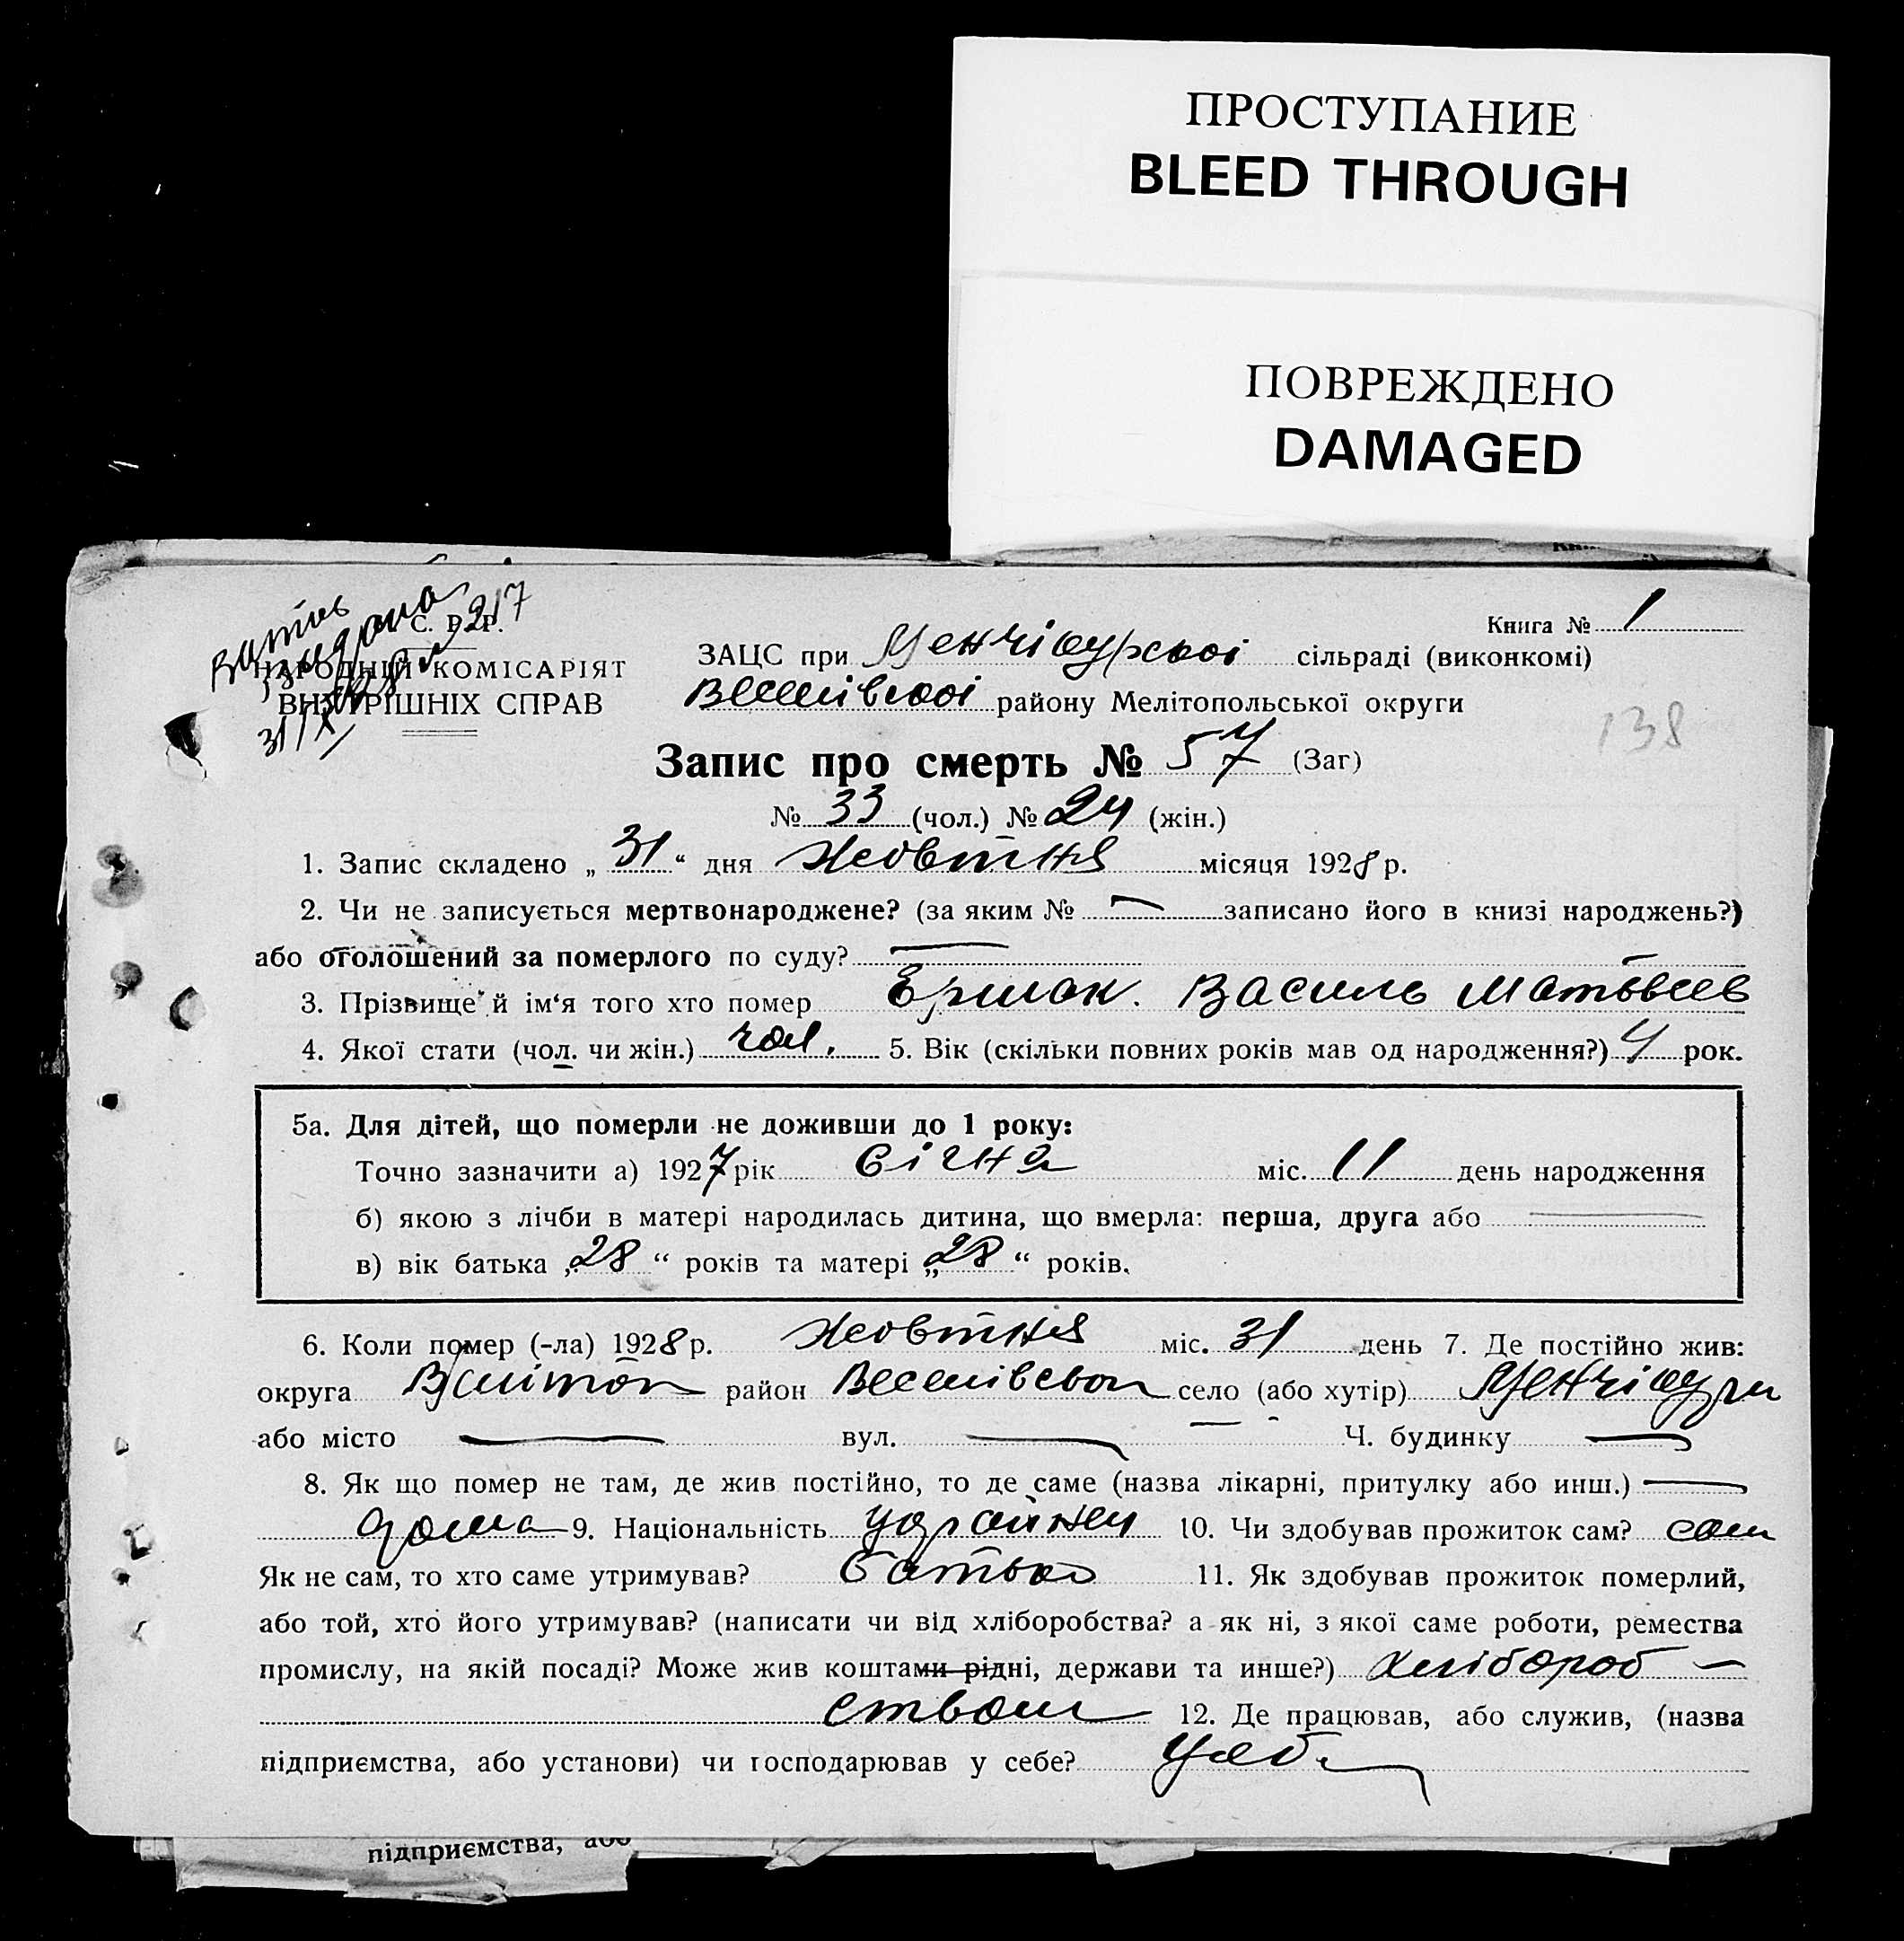 ПРОСТУПАНИЕ
BLEED THROUGH
ПОВРЕЖДЕНО
DAMAGED
Витяг
видано
№ 217
31/X
С. Р. Р.
НАРОДНІЙ КОМІСАРІЯТ
ВНУТРІШНІХ СПРАВ
Книга № 1
ЗАЦС при Менчікурської сільраді (виконкомі)
Веселівської району Мелітопольської округи
138
Запис про смерть № 57 (Заг)
№ 33 (чол.) № 24 (жін.)
1. Запис складено „ 31 “ дня Жовтня місяця 1928 р.
2. Чи не записується мертвонароджене? (за яким № — записано його в книзі народжень?)
або оголошений за померлого по суду? —
3. Прізвище й ім‘я того хто помер Ермак. Василь Матвеев
4. Якої стати (чол. чи жін.) чол. 5. Вік (скільки повних років мав од народження?) 4 рок.
5а. Для дітей, що померли не доживши до 1 року:
Точно зазначити а) 1927 рік Січня міс. 11 день народження
б) якою з лічби в матері народилась дитина, що вмерла: перша, друга або —
в) вік батька „28“ років та матері „28“ років.
6. Коли помер (-ла) 1928 р. Жовтня міс. 31 день 7. Де постійно жив:
округа район Веселівськ село (або хутір) Менчікури
або місто — вул. — Ч. будинку —
8. Як що помер не там, де жив постійно, то де саме (назва лікарні, притулку або инш.) —
дома 9. Національність україн 10. Чи здобував прожиток сам? сам
Як не сам, то хто саме утримував? батько 11. Як здобував прожиток померлий,
або той, хто його утримував? (написати чи від хліборобства? а як ні, з якої саме роботи, ремества
промислу, на якій посаді? Може жив коштами рідні, держави та инше?) хлібороб –
ством 12. Де працював, або служив, (назва
підприємства, або установи) чи господарював у себе? У себе
підприємства, або